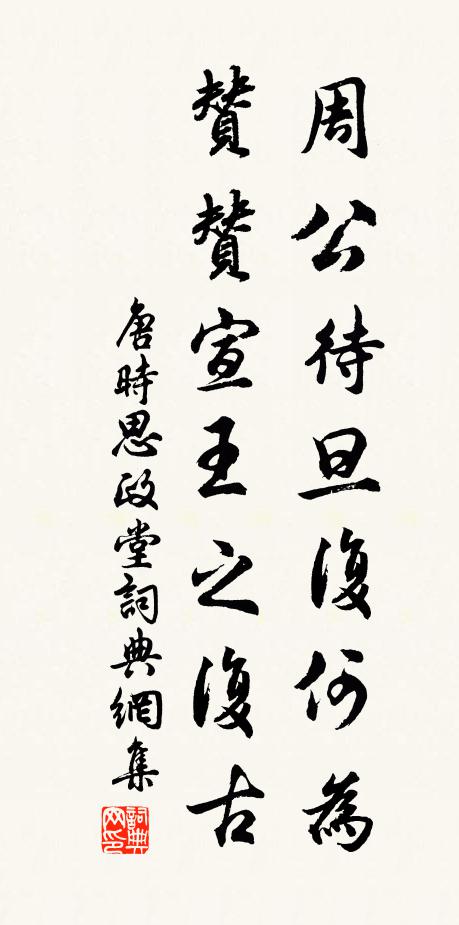 周公待旦復何為
贊贊宣王之復古
唐時思政堂詞典網集
詞典網印